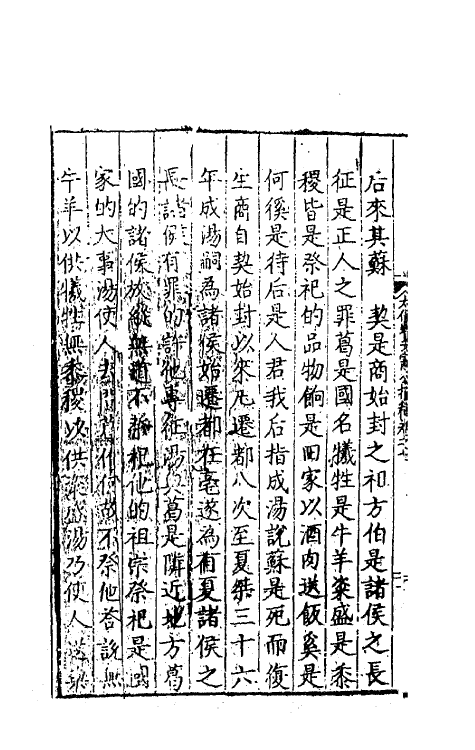 后來其蘇　契是商始封之祖方伯是諸侯之長
征是正人之罪葛是國名犧牲是牛羊粢盛是黍
稷皆是祭祀的品物餉是田家以酒肉送飯奚是
何徯是待后是人君我后指成湯說蘇是死而復
生商自契始封以來凡遷都八次至夏桀三十六
年成湯嗣為諸侯始遷都在亳遂為有夏諸侯之
長諸侯有罪的許他專征湯與葛是隣近地方葛
國的諸侯放縱無道不祭祀他的祖宗祭祀是國
家的大事湯使人去問為何不祭他荅說無
牛羊以供犧牲無黍稷以供粢盛湯乃使人送